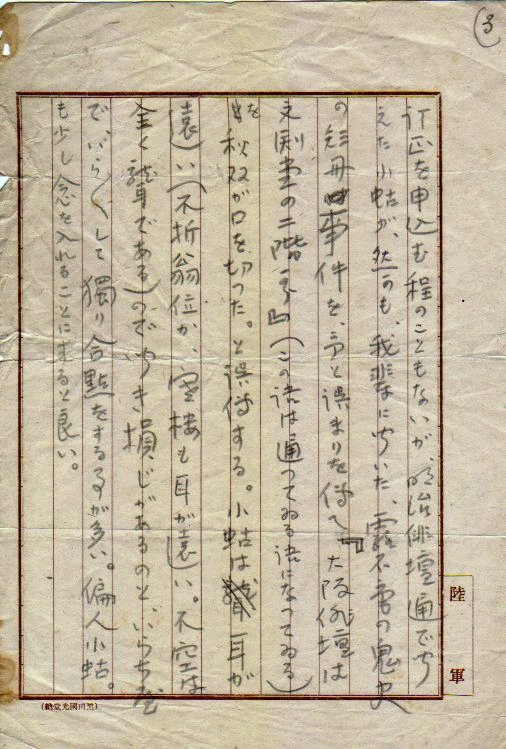 3
訂正を申込む程のこともないが、明治俳壇通で聞
えた小蛄が、然かも、我輩に聞いた、露不雪の鬼史
の短冊事件を、と誤まりを伝へ『大阪俳壇は
文渕堂の二階で』(この話は通つてゐる話になつてゐる)
を秋双が口を切つた。と誤伝する。小蛄は耳が
遠い(不折翁位か、空楼も耳が遠い。不空は
全く聾である)ので聞き損じがあるのといらち屋
で、いら〱して獨り合點をする事が多い。偏人小蛄。
も少し念を入れることにすると良い。
陸軍
(黒田國光堂納)